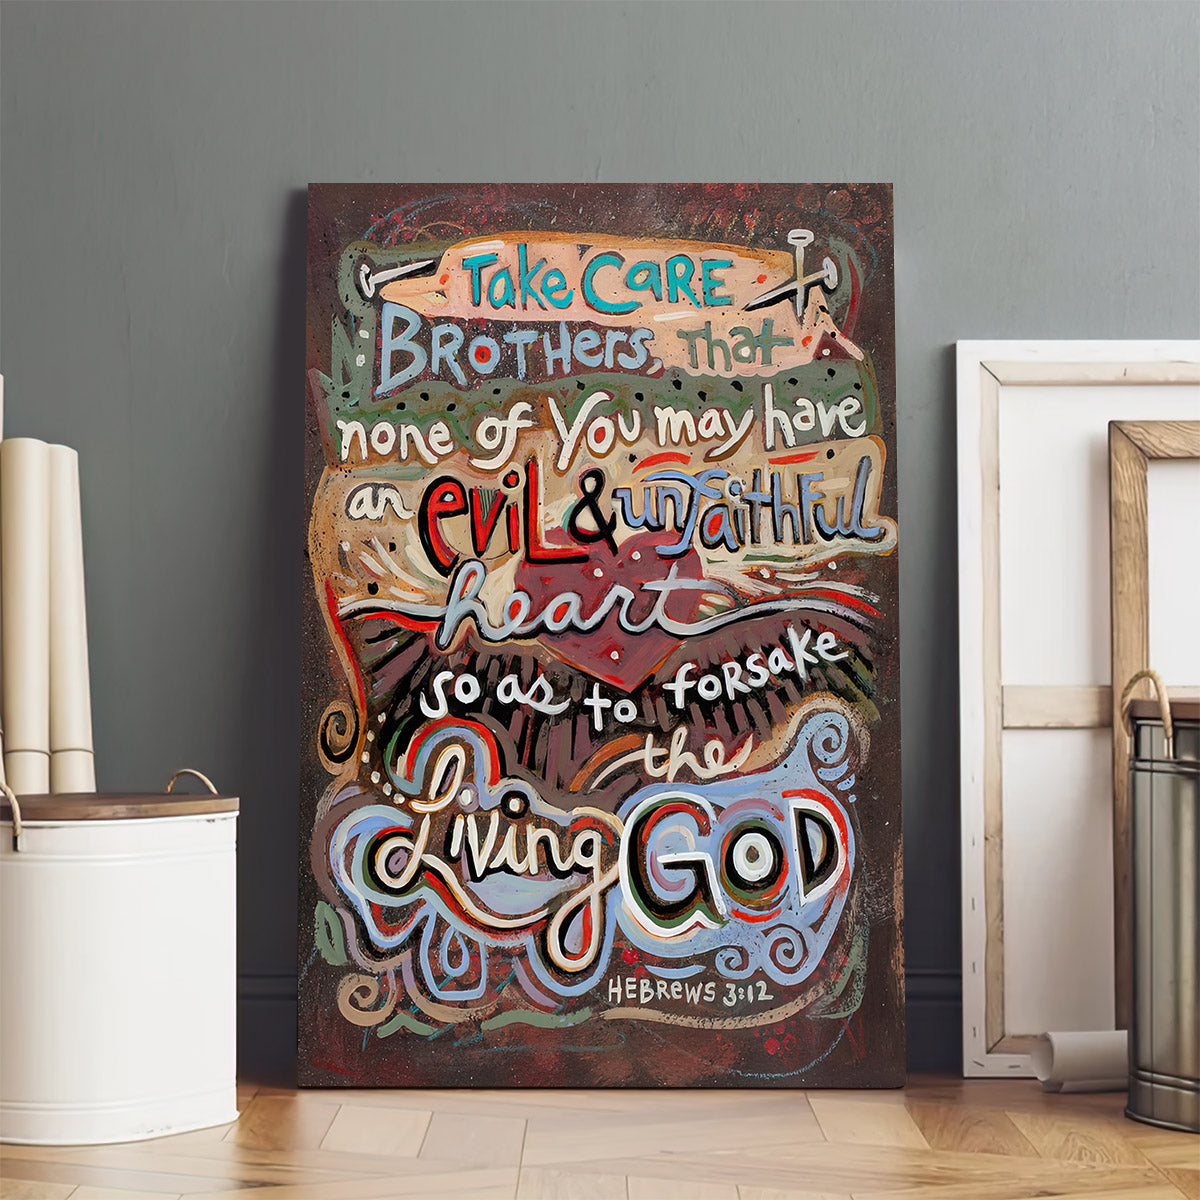 Take CARE
BROTHers, That
none of You may have
an evil & unfaithful
heart
so as to forsake
the
Living GOD
HEBREWS 3:12